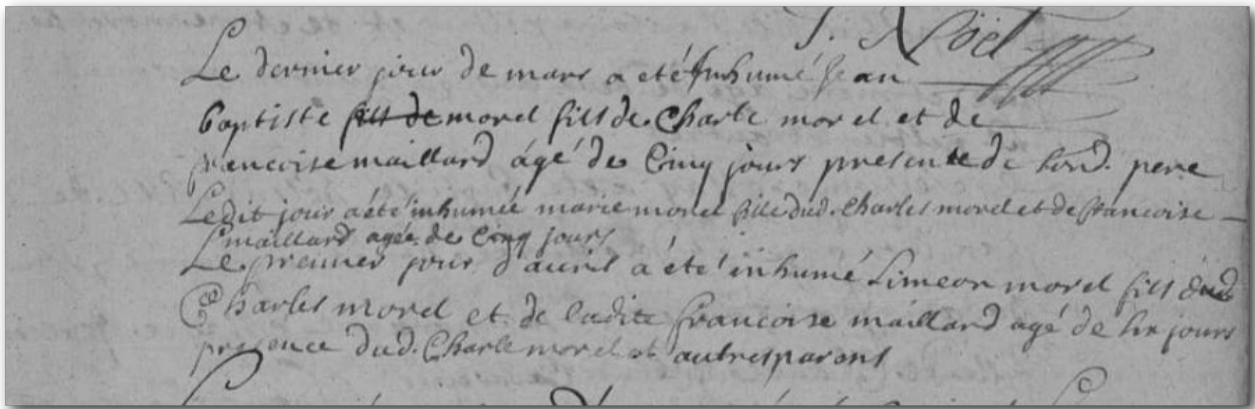 J. Noël
Le dernier jour de mars a eté Inhumé Jean
baptiste fils de morel fils de Charle morel et de
francoise maillard agé de Cinq jours presente de sond. pere
Ledit jour a été inhumée marie morel fille dud. Charles morel et de francoise
maillard agée de Cinq jours
Le premier jour d'auril a été inhumé Simeon morel fils dud
Charles morel et de ladite francoise maillard agé de six jours
presence dud. Charle morel et autres parens